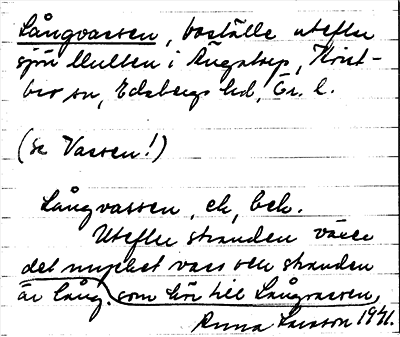 Långvassen, boställe utefter
sjön Multen i Ängatorp, Knist-
bro sn, Edsbergs hd, Ör. l.
(se Vassen!)
Långvassen, ek, beb.
Utefter stranden växer
det mycket vass och stranden
är lång, som hör till Långvassen,
Anna Larsson 1941.